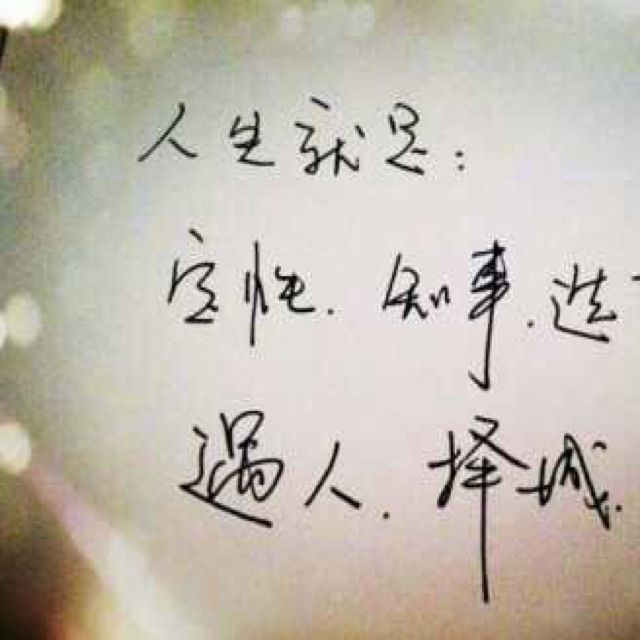 人生就是:
定性.知事.选
遇人.择城.